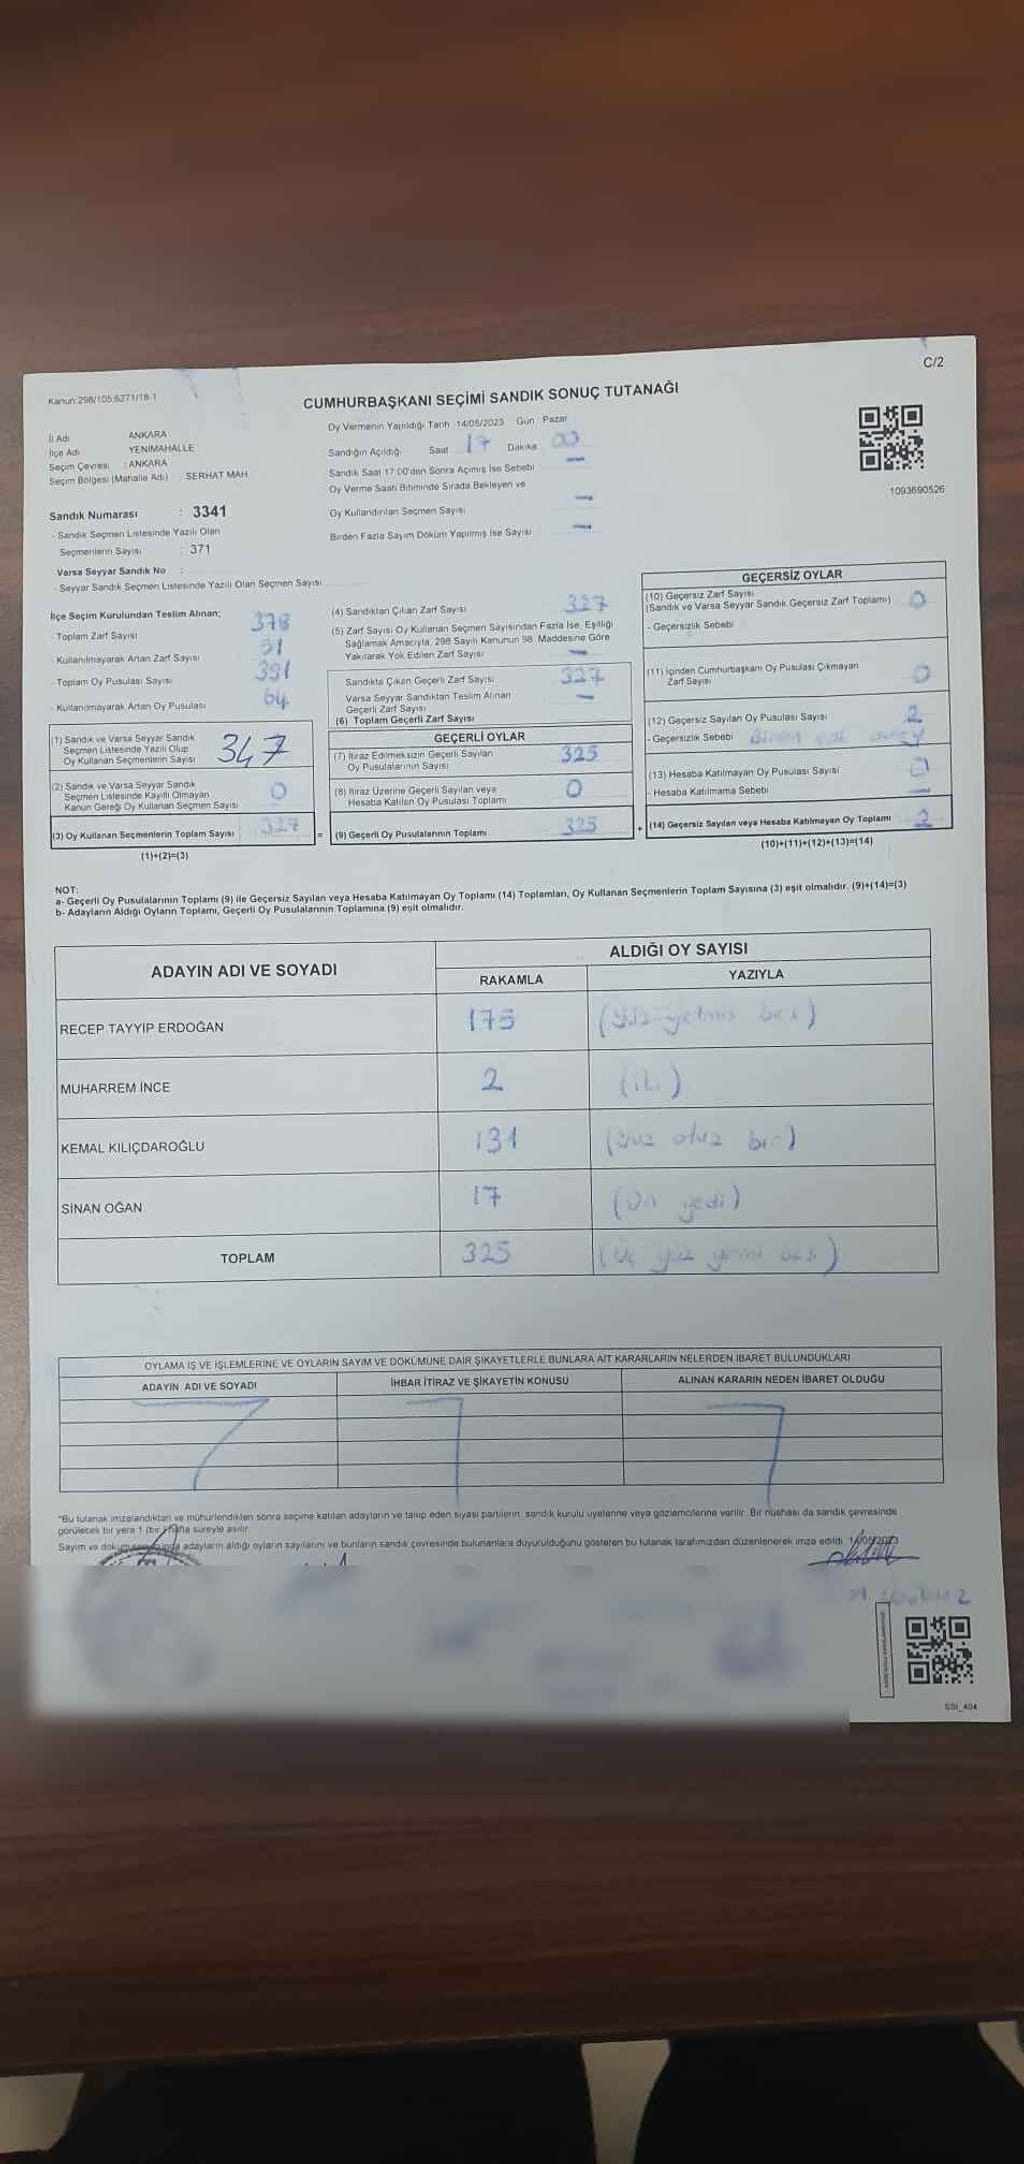 C/2
Kanun:298/105;6271/18-1
CUMHURBAŞKANI SEÇİMİ SANDIK SONUÇ TUTANAĞI
İl Adı ANKARA
İlçe Adı YENİMAHALLE
Seçim Çevresi : ANKARA
Seçim Bölgesi (Mahalle Adı) SERHAT MAH
Sandık Numarası : 3341
- Sandık Seçmen Listesinde Yazılı Olan
Seçmenlerin Sayısı : 371
Varsa Seyyar Sandık No :
- Seyyar Sandık Seçmen Listesinde Yazılı Olan Seçmen Sayısı
Oy Vermenin Yapıldığı Tarih 14/05/2023 Gün Pazar
Sandığın Açıldığı Saat 17 Dakika 00
Sandık Saat 17:00'den Sonra Açılmış İse Sebebi —
Oy Verme Saati Bitiminde Sırada Bekleyen ve
Oy Kullandırılan Seçmen Sayısı —
Birden Fazla Sayım Döküm Yapılmış İse Sayısı —
1093690526
İlçe Seçim Kurulundan Teslim Alınan;
- Toplam Zarf Sayısı 378
- Kullanılmayarak Artan Zarf Sayısı 51
- Toplam Oy Pusulası Sayısı 391
- Kullanılmayarak Artan Oy Pusulası 64
(1) Sandık ve Varsa Seyyar Sandık
Seçmen Listesinde Yazılı Olup
Oy Kullanan Seçmenlerin Sayısı 347
(2) Sandık ve Varsa Seyyar Sandık
Seçmen Listesinde Kayıtlı Olmayan
Kanun Gereği Oy Kullanan Seçmen Sayısı 0
(3) Oy Kullanan Seçmenlerin Toplam Sayısı 327 =
(1)+(2)=(3)
(4) Sandıktan Çıkan Zarf Sayısı 327
(5) Zarf Sayısı Oy Kullanan Seçmen Sayısından Fazla İse, Eşitliği
Sağlamak Amacıyla, 298 Sayılı Kanunun 98. Maddesine Göre
Yakılarak Yok Edilen Zarf Sayısı —
Sandıkta Çıkan Geçerli Zarf Sayısı 327
Varsa Seyyar Sandıktan Teslim Alınan
Geçerli Zarf Sayısı —
(6) Toplam Geçerli Zarf Sayısı
GEÇERLİ OYLAR
(7) İtiraz Edilmeksizin Geçerli Sayılan
Oy Pusulalarının Sayısı 325
(8) İtiraz Üzerine Geçerli Sayılan veya
Hesaba Katılan Oy Pusulası Toplamı 0
(9) Geçerli Oy Pusulalarının Toplamı 325 +
GEÇERSİZ OYLAR
(10) Geçersiz Zarf Sayısı
(Sandık ve Varsa Seyyar Sandık Geçersiz Zarf Toplamı) 0
- Geçersizlik Sebebi
(11) İçinden Cumhurbaşkanı Oy Pusulası Çıkmayan
Zarf Sayısı 0
(12) Geçersiz Sayılan Oy Pusulası Sayısı 2
- Geçersizlik Sebebi
(13) Hesaba Katılmayan Oy Pusulası Sayısı 0
- Hesaba Katılmama Sebebi —
(14) Geçersiz Sayılan veya Hesaba Katılmayan Oy Toplamı 2
(10)+(11)+(12)+(13)=(14)
NOT:
a- Geçerli Oy Pusulalarının Toplamı (9) ile Geçersiz Sayılan veya Hesaba Katılmayan Oy Toplamı (14) Toplamları, Oy Kullanan Seçmenlerin Toplam Sayısına (3) eşit olmalıdır. (9)+(14)=(3)
b- Adayların Aldığı Oyların Toplamı, Geçerli Oy Pusulalarının Toplamına (9) eşit olmalıdır.
ADAYIN ADI VE SOYADI ALDIĞI OY SAYISI
RAKAMLA YAZIYLA
RECEP TAYYİP ERDOĞAN 175 (yüz yetmiş beş)
MUHARREM İNCE 2 (iki)
KEMAL KILIÇDAROĞLU 131 (yüz otuz bir)
SİNAN OĞAN 17 (On yedi)
TOPLAM 325 (Üç yüz yirmi beş)
OYLAMA İŞ VE İŞLEMLERİNE VE OYLARIN SAYIM VE DÖKÜMÜNE DAİR ŞİKAYETLERLE BUNLARA AİT KARARLARIN NELERDEN İBARET BULUNDUKLARI
ADAYIN ADI VE SOYADI İHBAR İTİRAZ VE ŞİKAYETİN KONUSU ALINAN KARARIN NEDEN İBARET OLDUĞU
*Bu tutanak imzalandıktan ve mühürlendikten sonra seçime katılan adayların ve talep eden siyasi partilerin sandık kurulu üyelerine veya gözlemcilerine verilir. Bir nüshası da sandık çevresinde
görülecek bir yere 1 (bir) hafta süreyle asılır.
Sayım ve dökümü adayların aldığı oyların sayılarını ve bunların sandık çevresinde bulunanlara duyurulduğunu gösteren bu tutanak tarafımızdan düzenlenerek imza edildi. 14/05/2023
SSI_404